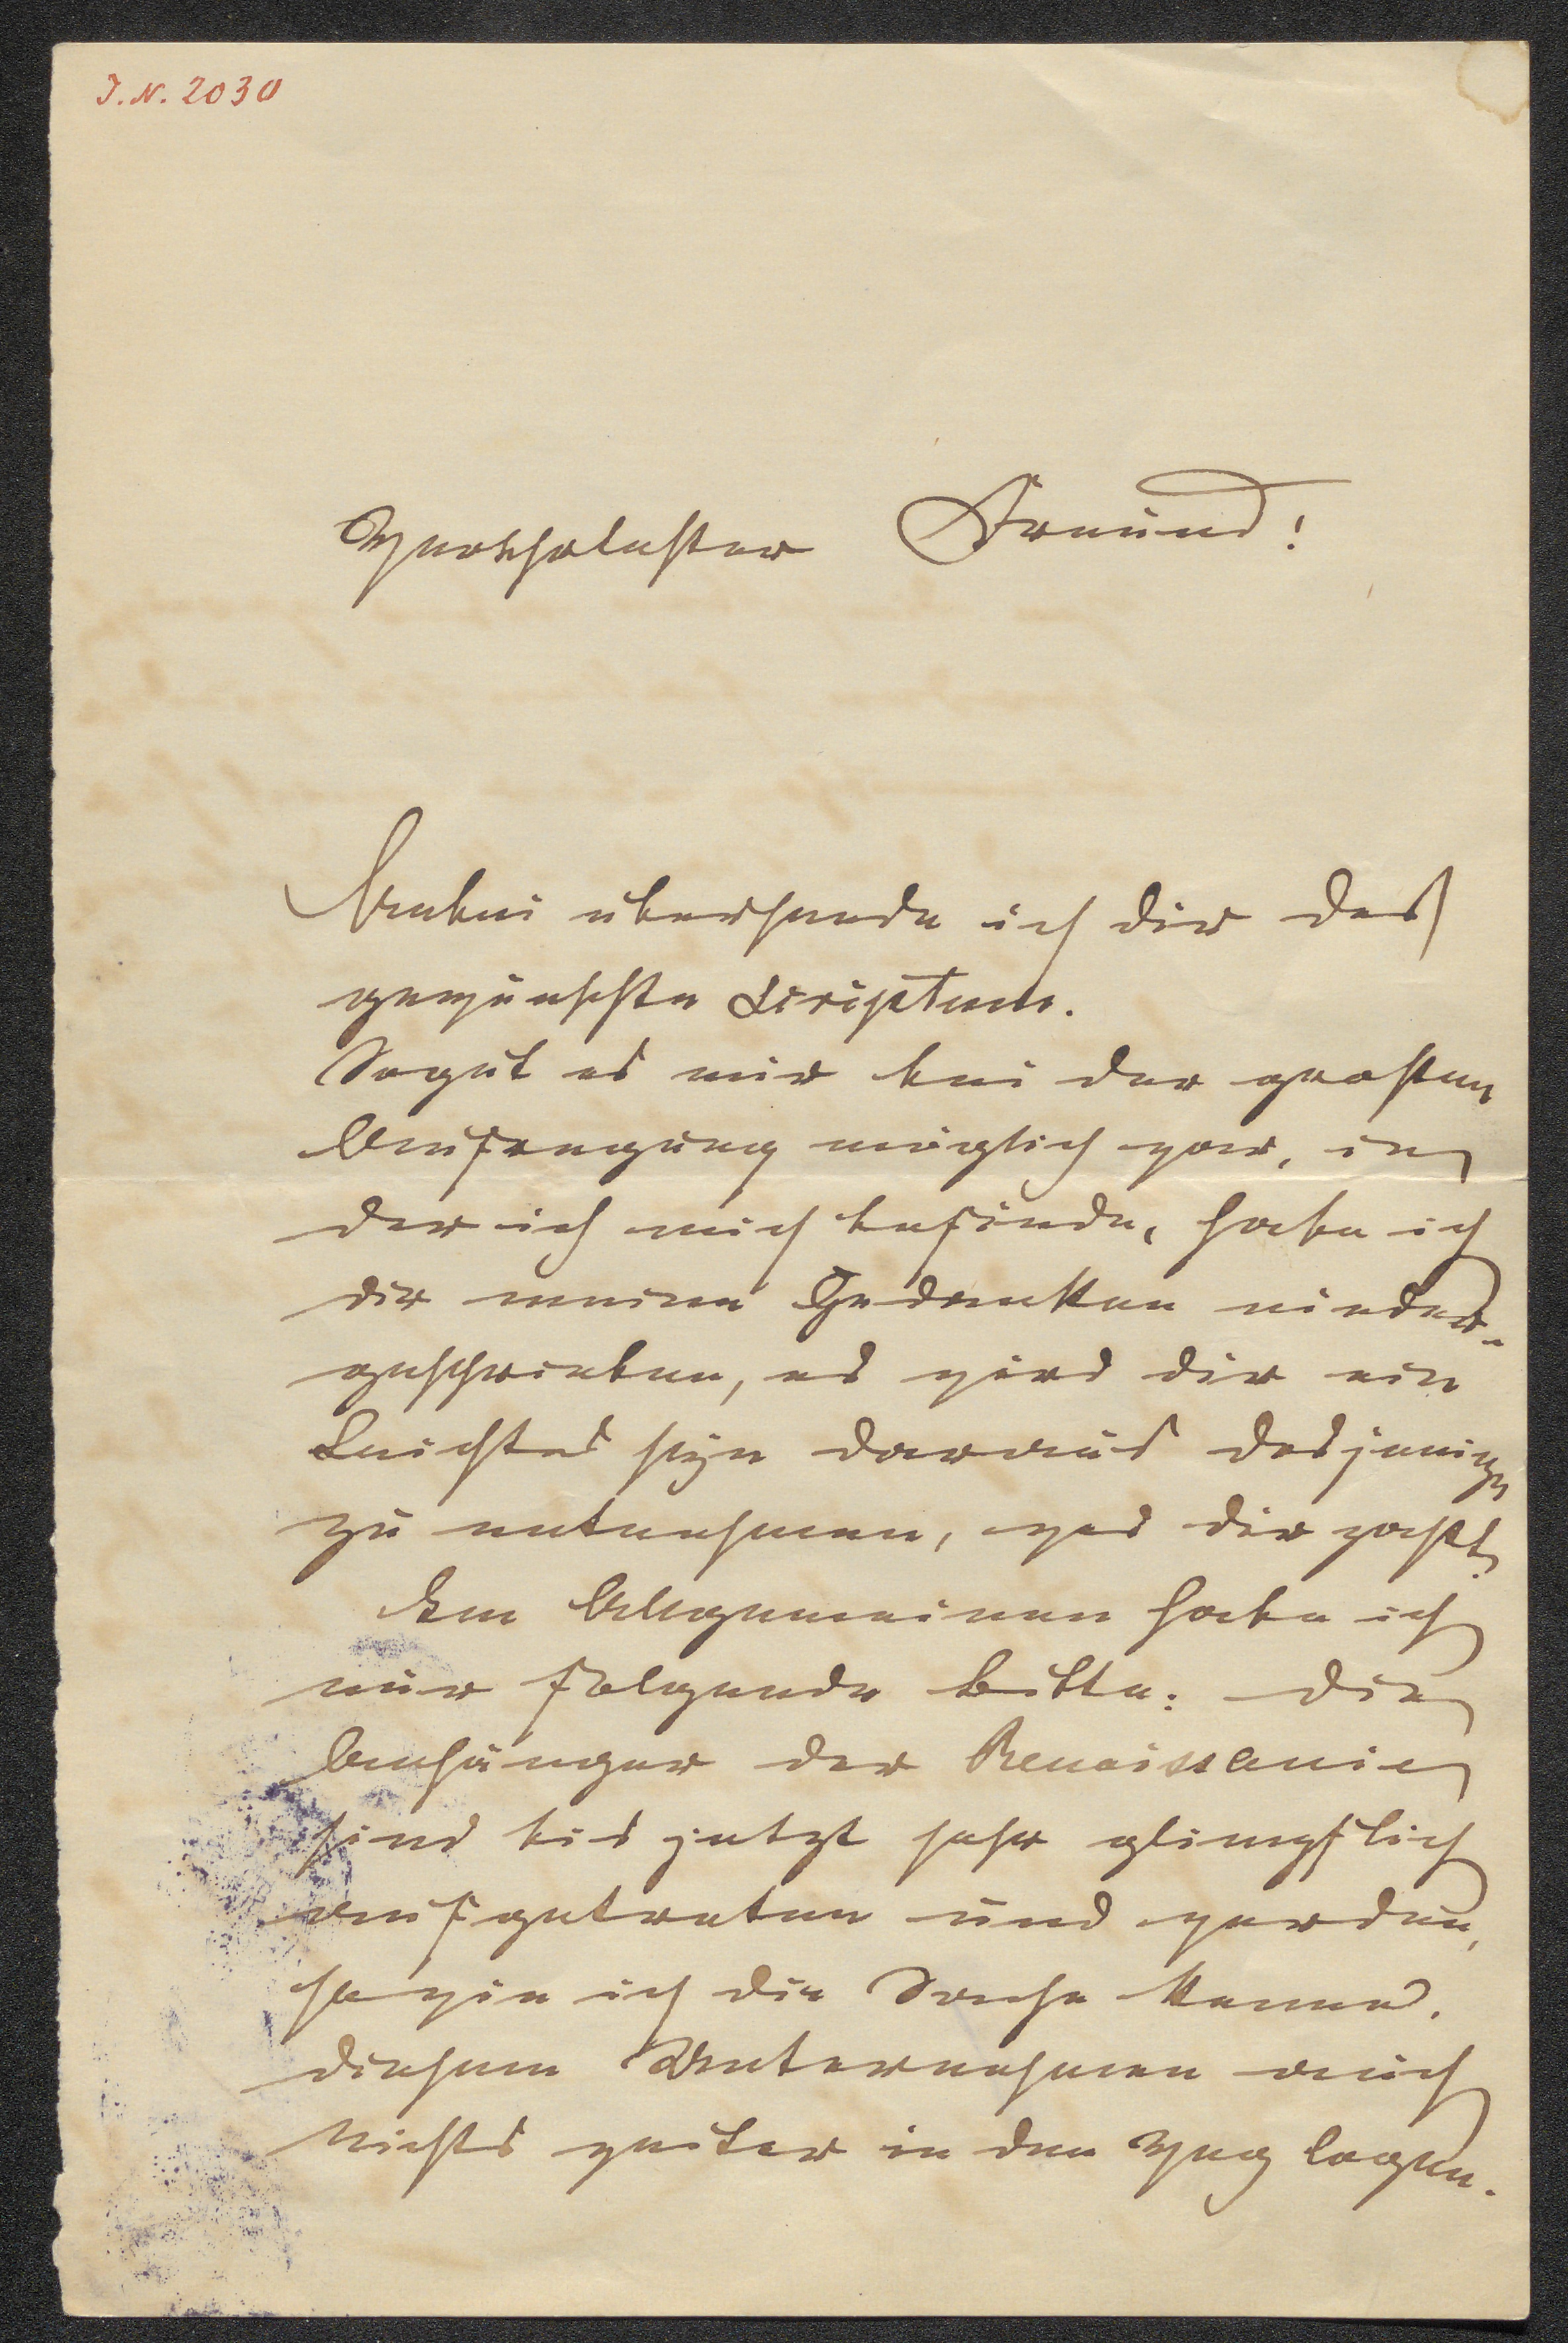 J. N. 2030
Werthelester Freund!
Anbei übersende ich dir das
gewünschte Scriptum.
Sogut es mir bei der großen
Aufregung möglich war, in
der ich mich befinde, habe ich
dir meine Gedanken nieder-
geschrieben, es wird dir ein
Leichtes seyn daraus dasjenige
zu entnehmen, was dir paßt.
Im Allgemeinen habe ich
nur folgende bitte: die
Anhänger der Renaissance
sind bis jetzt sehr glimpflich
aufgetreten und werden,
so wie ich die Sache kenne,
diesem Unternehmen auch
Nichts weiter in den Weg legen.